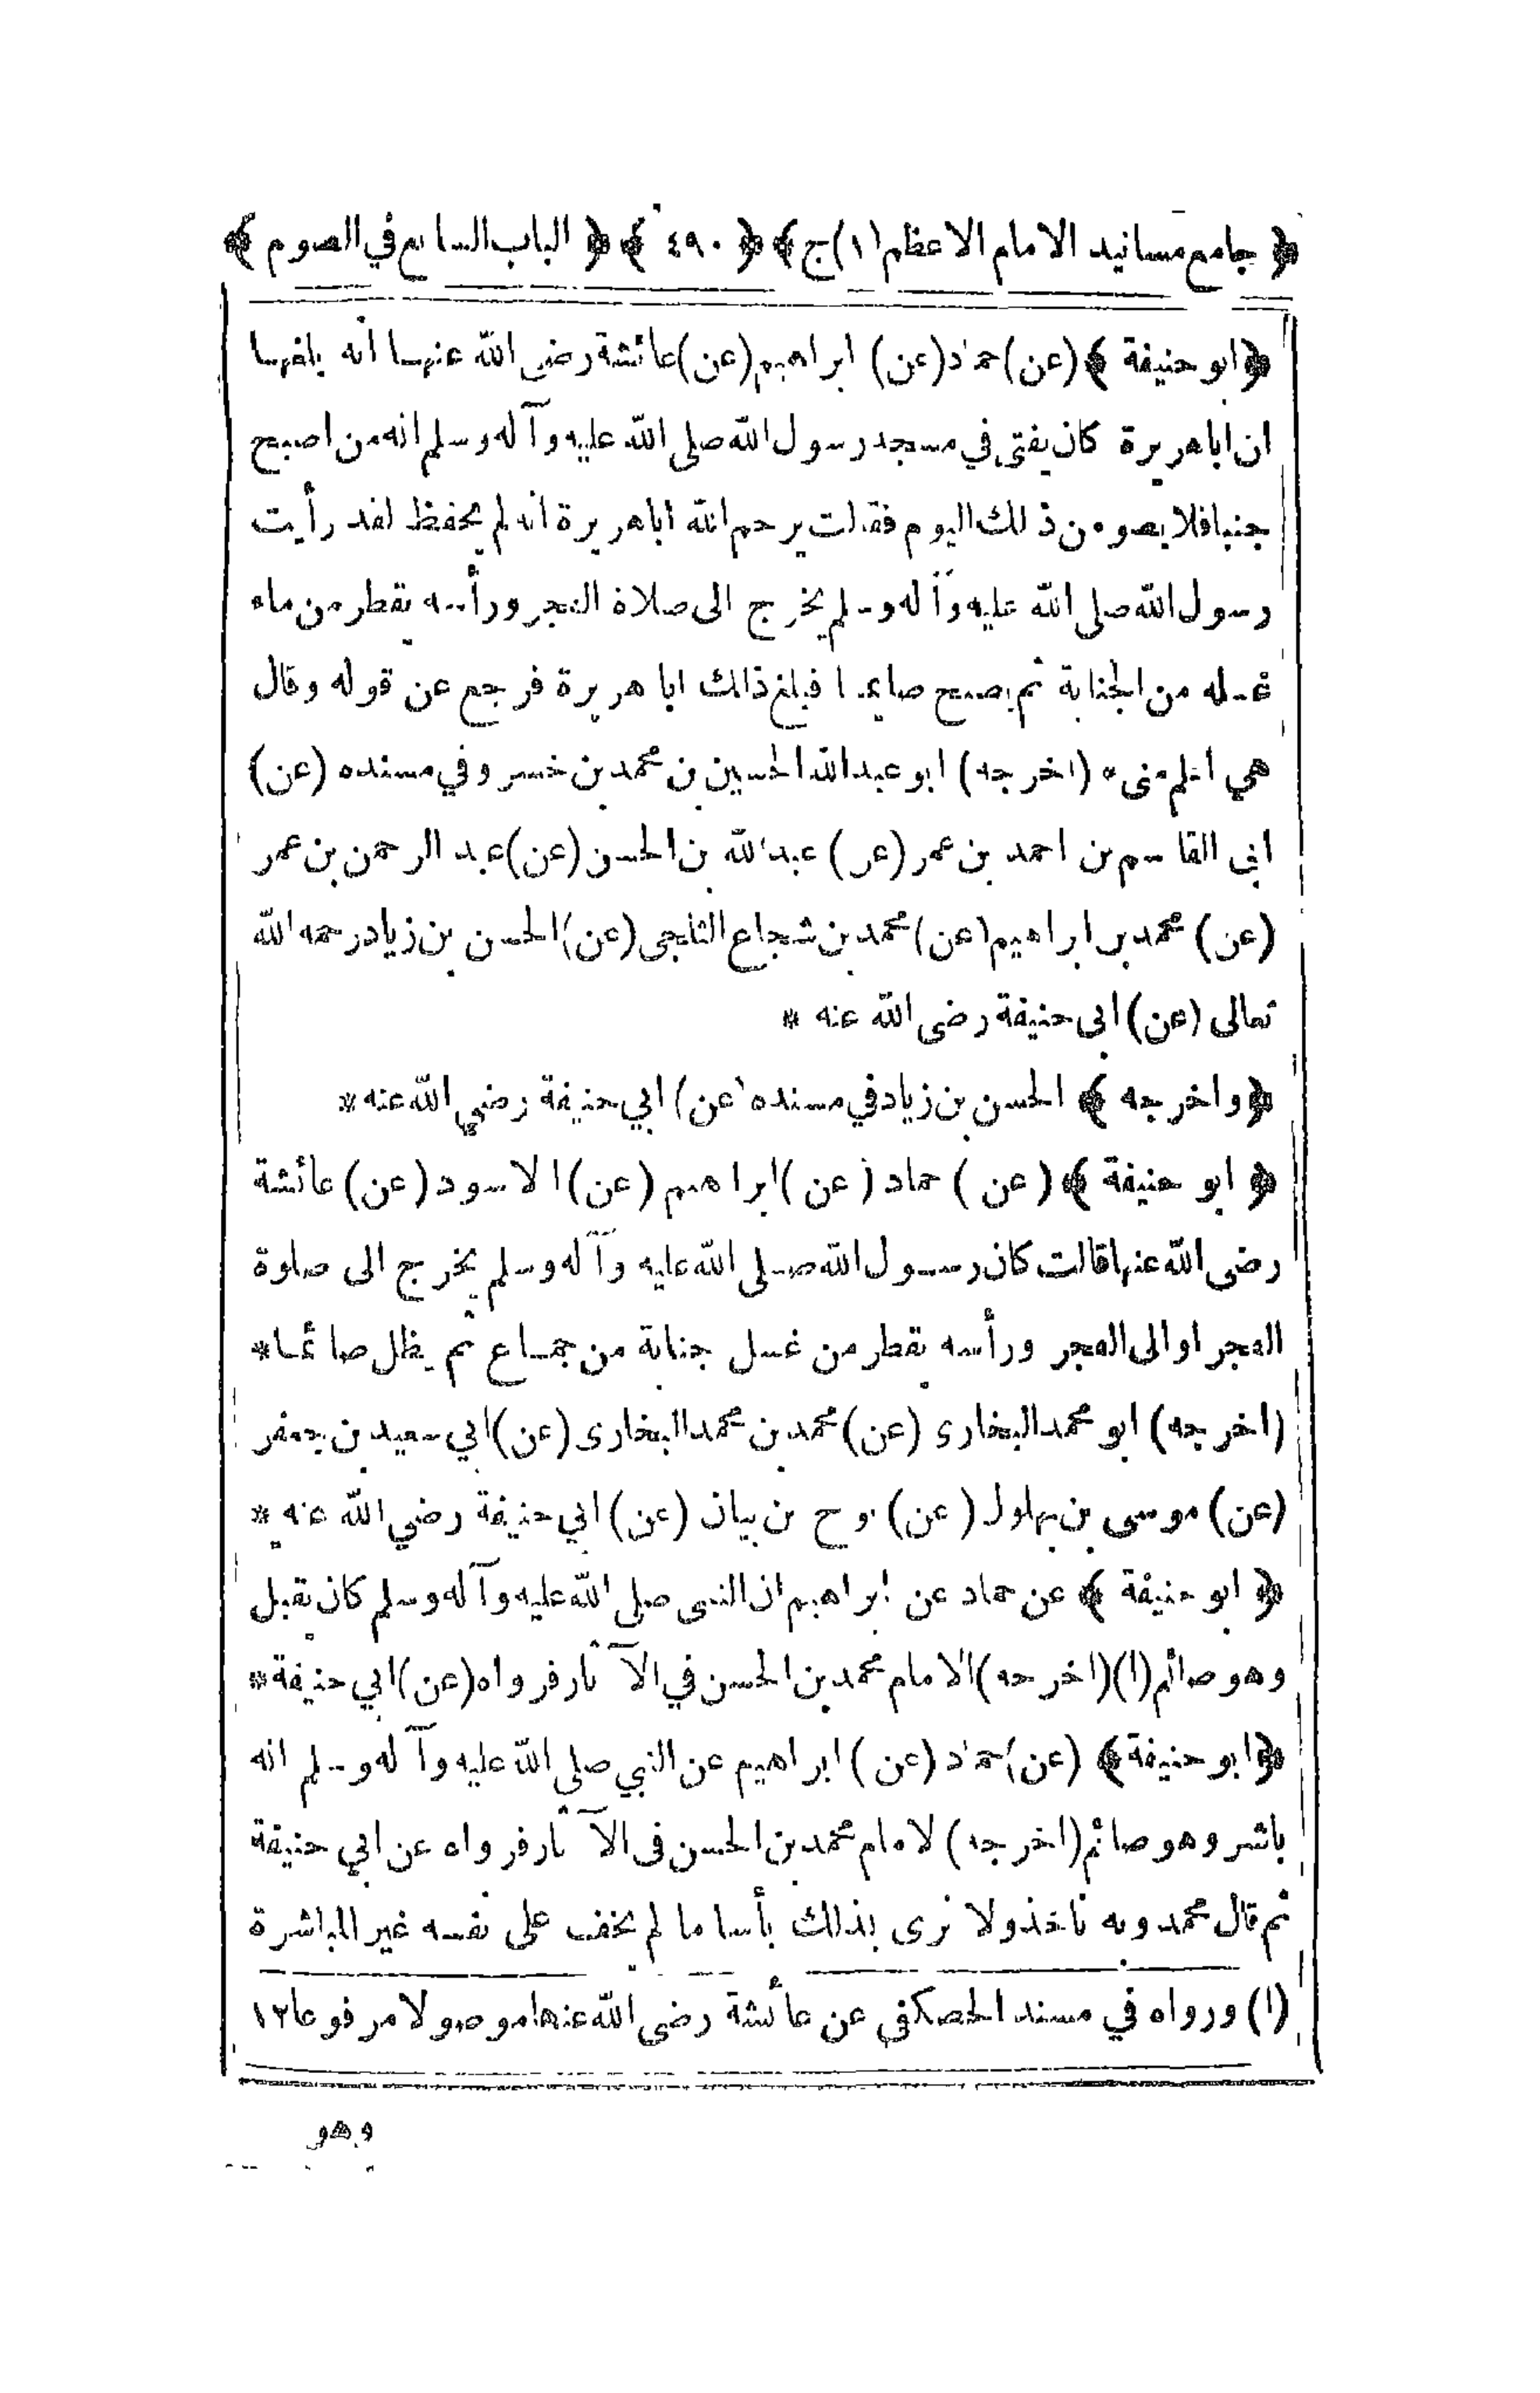 ﴿ جامع مسانيد الامام الاعظم (١) ج ﴾ ﴿ ٤٩٠ ﴾ ﴿ الباب السابع في الصوم ﴾
﴿ ابو حنيفة ﴾ (عن) حماد (عن) ابراهيم (عن) عائشة رضى الله عنهما انه بلغها
ان اباهريرة كان يفتى في مسجد رسول الله صلى الله عليه وآله وسلم انه من اصبح
جنبا فلا يصومن ذلك اليوم فقالت يرحم الله اباهريرة انه لم يحفظ لقد رأيت
رسول الله صلى الله عليه وآله وسلم يخرج الى صلاة الفجر ورأسه يقطر من ماء
غسله من الجنابة ثم يصبح صايما فبلغ ذالك ابا هريرة فرجع عن قوله وقال
هي اعلم منى * (اخرجه) ابو عبدالله الحسين بن محمد بن خسرو في مسنده (عن)
ابى القاسم بن احمد بن عمر (عن) عبدالله بن الحسن (عن) عبد الرحمن بن عمر
(عن) محمد بن ابراهيم (عن) محمد بن شجاع الثلجى (عن) الحسن بن زياد رحمه الله
تعالى (عن) ابى حنيفة رضى الله عنه *
﴿ واخرجه ﴾ الحسن بن زياد في مسنده (عن) ابي حنيفة رضي الله عنه *
﴿ ابو حنيفة ﴾ (عن) حماد (عن) ابراهيم (عن) الاسود (عن) عائشة
رضى الله عنها قالت كان رسول الله صلى الله عليه وآله وسلم يخرج الى صلوة
الفجر او الى الفجر ورأسه يقطر من غسل جنابة من جماع ثم يظل صائما *
(اخرجه) ابو محمد البخارى (عن) محمد بن محمد البخارى (عن) ابي سعيد بن جعفر
(عن) موسى بن بهلول (عن) نوح بن بيان (عن) ابي حنيفة رضي الله عنه *
﴿ ابو حنيفة ﴾ عن حماد عن ابراهيم ان النبى صلى الله عليه وآله وسلم كان يقبل
وهو صائم (١) (اخرجه) الامام محمد بن الحسن في الآثار فرواه (عن) ابي حنيفة *
﴿ ابو حنيفة ﴾ (عن) حماد (عن) ابراهيم عن النبي صلى الله عليه وآله وسلم انه
باشر وهو صائم (اخرجه) الامام محمد بن الحسن فى الآثار فرواه عن ابي حنيفة
ثم قال محمد وبه ناخذ ولا نرى بذلك بأسا ما لم يخف على نفسه غير المباشرة
(١) ورواه في مسند الحصكفى عن عائشة رضى الله عنها موصولا مرفوعا ١٢
وهو